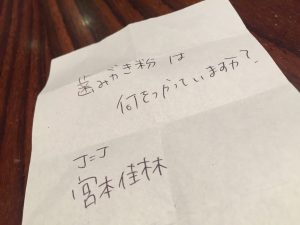 歯みがき粉は
何をつかっていますか？
J=J
宮本佳林